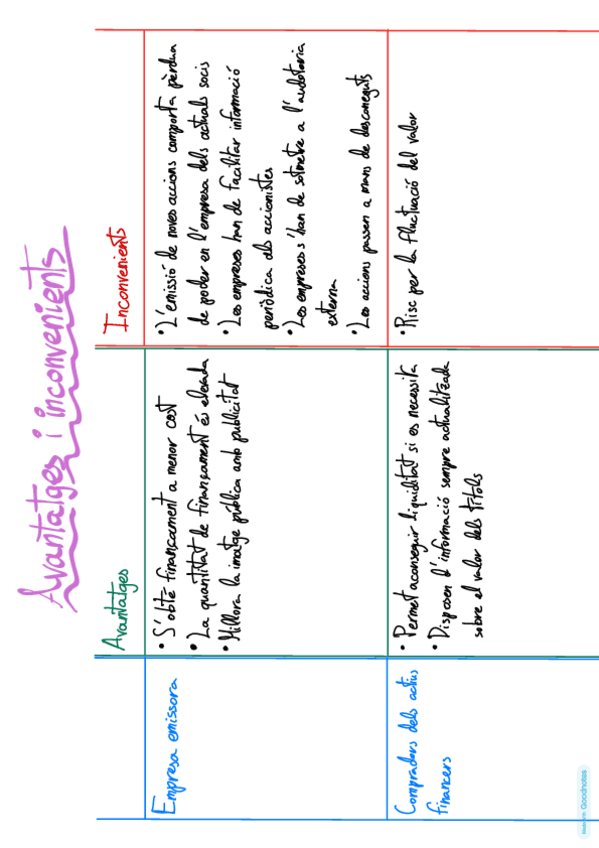 Avantatges i inconvenients
Avantatges
Inconvenients
Empresa emissora
• S'obté finançament a menor cost
• La quantitat de finançament és elevada
• Millora la imatge pública amb publicitat
• L'emissió de noves accions comporta pèrdua
de poder en l'empresa dels actuals socis
• Les empreses han de facilitar informació
periòdica als accionistes
• Les empreses s'han de sotmetre a l'auditoria
externa
• Les accions passen a mans de desconeguts
Compradors dels actius
financers
• Permet aconseguir liquiditat si es necessita
• Disposen d'informació sempre actualitzada
sobre el valor dels títols
• Risc per la fluctuació del valor
Made with Goodnotes